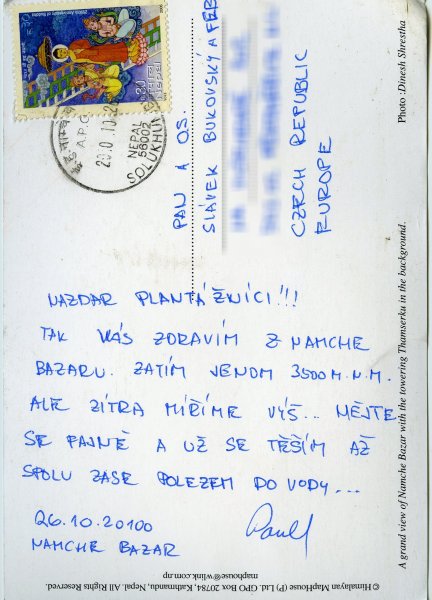 NAZDAR PLANTÁŽNÍCI!!!
TAK VÁS ZDRAVÍM Z NAMCHE
BAZARU. ZATÍM JENOM 3500 M.N.M.
ALE ZÍTRA MÍŘÍME VÝŠ... MĚJTE
SE FAJNĚ A UŽ SE TĚŠÍM AŽ
SPOLU ZASE POLEZEM DO VODY...
26.10.20100
NAMCHE BAZAR
PAN A OS.
SLÁVEK BUKOVSKÝ A FEB
CZECH REPUBLIC
EUROPE
A.P.O.
NEPAL
56002
SOLUKHUM
Photo :Dinesh Shrestha
A grand view of Namche Bazar with the towering Thamserku in the background.
©Himalayan MapHouse (P) Ltd. GPO Box 20784, Kathmandu, Nepal. All Rights Reserved.
maphouse@wlink.com.np